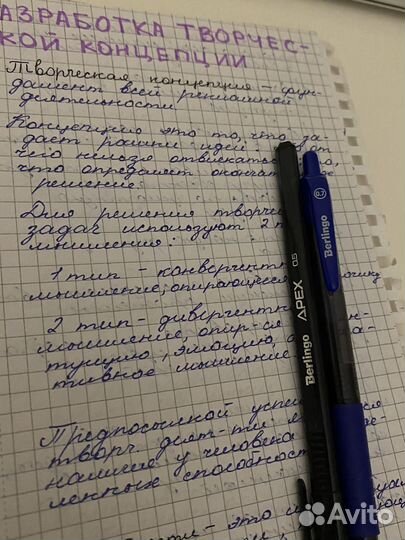 АЗРАБОТКА ТВОРЧЕС-
КОЙ КОНЦЕПЦИИ
Творческая концепция – фун-
дамент всей рекламной
деятельности
Концепция это то, что за-
даёт рамки идеи. от
чего нельзя отвлекаться
что определяет
решение.
Для решения
задач используют 2
мышления:
1 тип –
мышление, опирающееся
2 тип –
мышление, опир-ся
туцию, эмоцию,
тивное мышление
Предпосылкой
творч. деят-ти
наличие у человека
ленных способност
это
Berlingo APEX 0.5
Berlingo 0.7
Avito